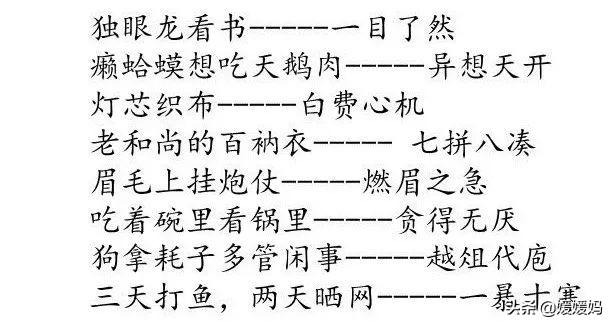 独眼龙看书-----一目了然
癞蛤蟆想吃天鹅肉-----异想天开
灯芯织布-----白费心机
老和尚的百衲衣----- 七拼八凑
眉毛上挂炮仗-----燃眉之急
吃着碗里看锅里-----贪得无厌
狗拿耗子多管闲事-----越俎代庖
三天打鱼，两天晒网-----一暴十寒
头条 @媛媛妈